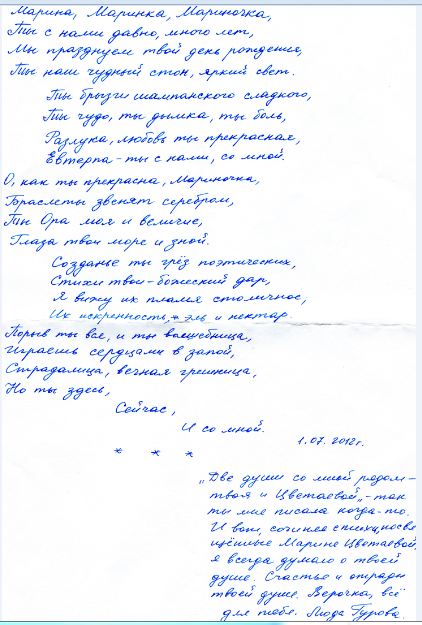 Марина, Маринка, Мариночка,
Ты с нами давно, много лет,
Мы празднуем твой день рождения,
Ты наш чудный стон, яркий свет.
Ты брызги шампанского сладкого,
Ты чудо, ты дымка, ты боль,
Разлука, любовь ты прекрасная,
Евтерпа - ты с нами, со мной.
О, как ты прекрасна, Мариночка,
Браслеты звенят серебром,
Ты Ора моя и величие,
Глаза твои море и зной.
Созданье ты грёз поэтических,
Стихи твои - божеский дар,
Я вижу их пламя столичное,
Их искренность, - эль и нектар.
Порыв ты все, и ты волшебница,
Играешь сердцами в запой,
Страдалица, вечная грешница,
Но ты здесь,
Сейчас,
И со мной.
1.07.2012г.
* * *
„Две души со мной рядом -
твоя и Цветаевой„ - так
ты мне писала когда-то.
И вот, сочиняя стихи, посвя
щённые Марине Цветаевой,
я всегда думаю о твоей
душе. Счастья и отрады
твоей душе, Верочка, всё
для тебя. Люда Гурова.